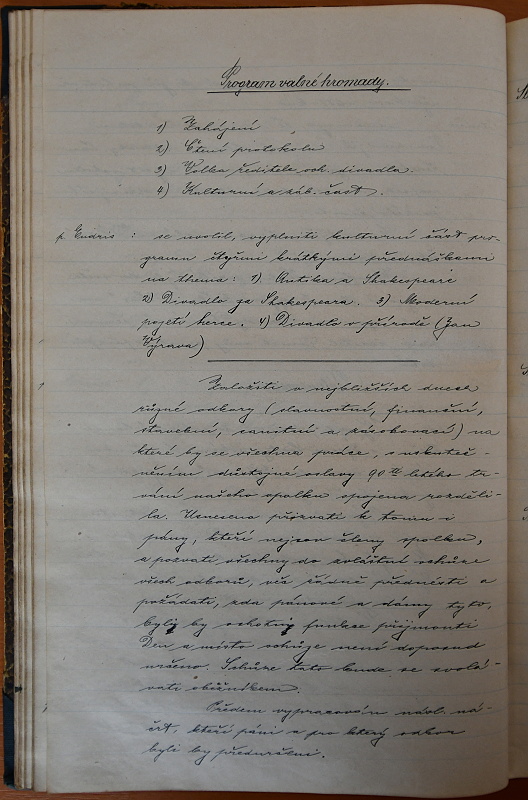 Program valné hromady.
1) Zahájení
2) Čtení protokolu
3) Volba ředitele och. divadla.
4) Kulturní a záb. část.
p. Endris : se uvolil, vyplniti kulturní část pro-
gramu čtyřmi krátkými přednáškami
na thema: 1) Antika a Shakespeare
2) Divadlo za Shakespeara. 3) Moderní
pojetí herce. 4) Divadlo v přírodě (Jan
Výrava)
Založiti v nejbližších dnech
různé odbory (slavnostní, finanční,
stavební, sanitní a zásobovací) na
které by se všechna práce, s uskuteč-
něním důstojné oslavy 90ti letého tr-
vání našeho spolku spojena rozděli-
la. Usneseno přizvati k tomu i
pány, kteří nejsou členy spolku,
a pozvati všechny do zvláštní schůze
všech odborů, věc řádně přednésti a
požádati, zda pánové a dámy tyto,
byli by ochotni funkce přijmouti
Den a místo schůze není doposud
určeno. Schůze tato bude se svolá-
vati oběžníkem.
Předem vypracován návrh. ná-
črt, kteří páni a pro který odbor
byli by předurčeni.